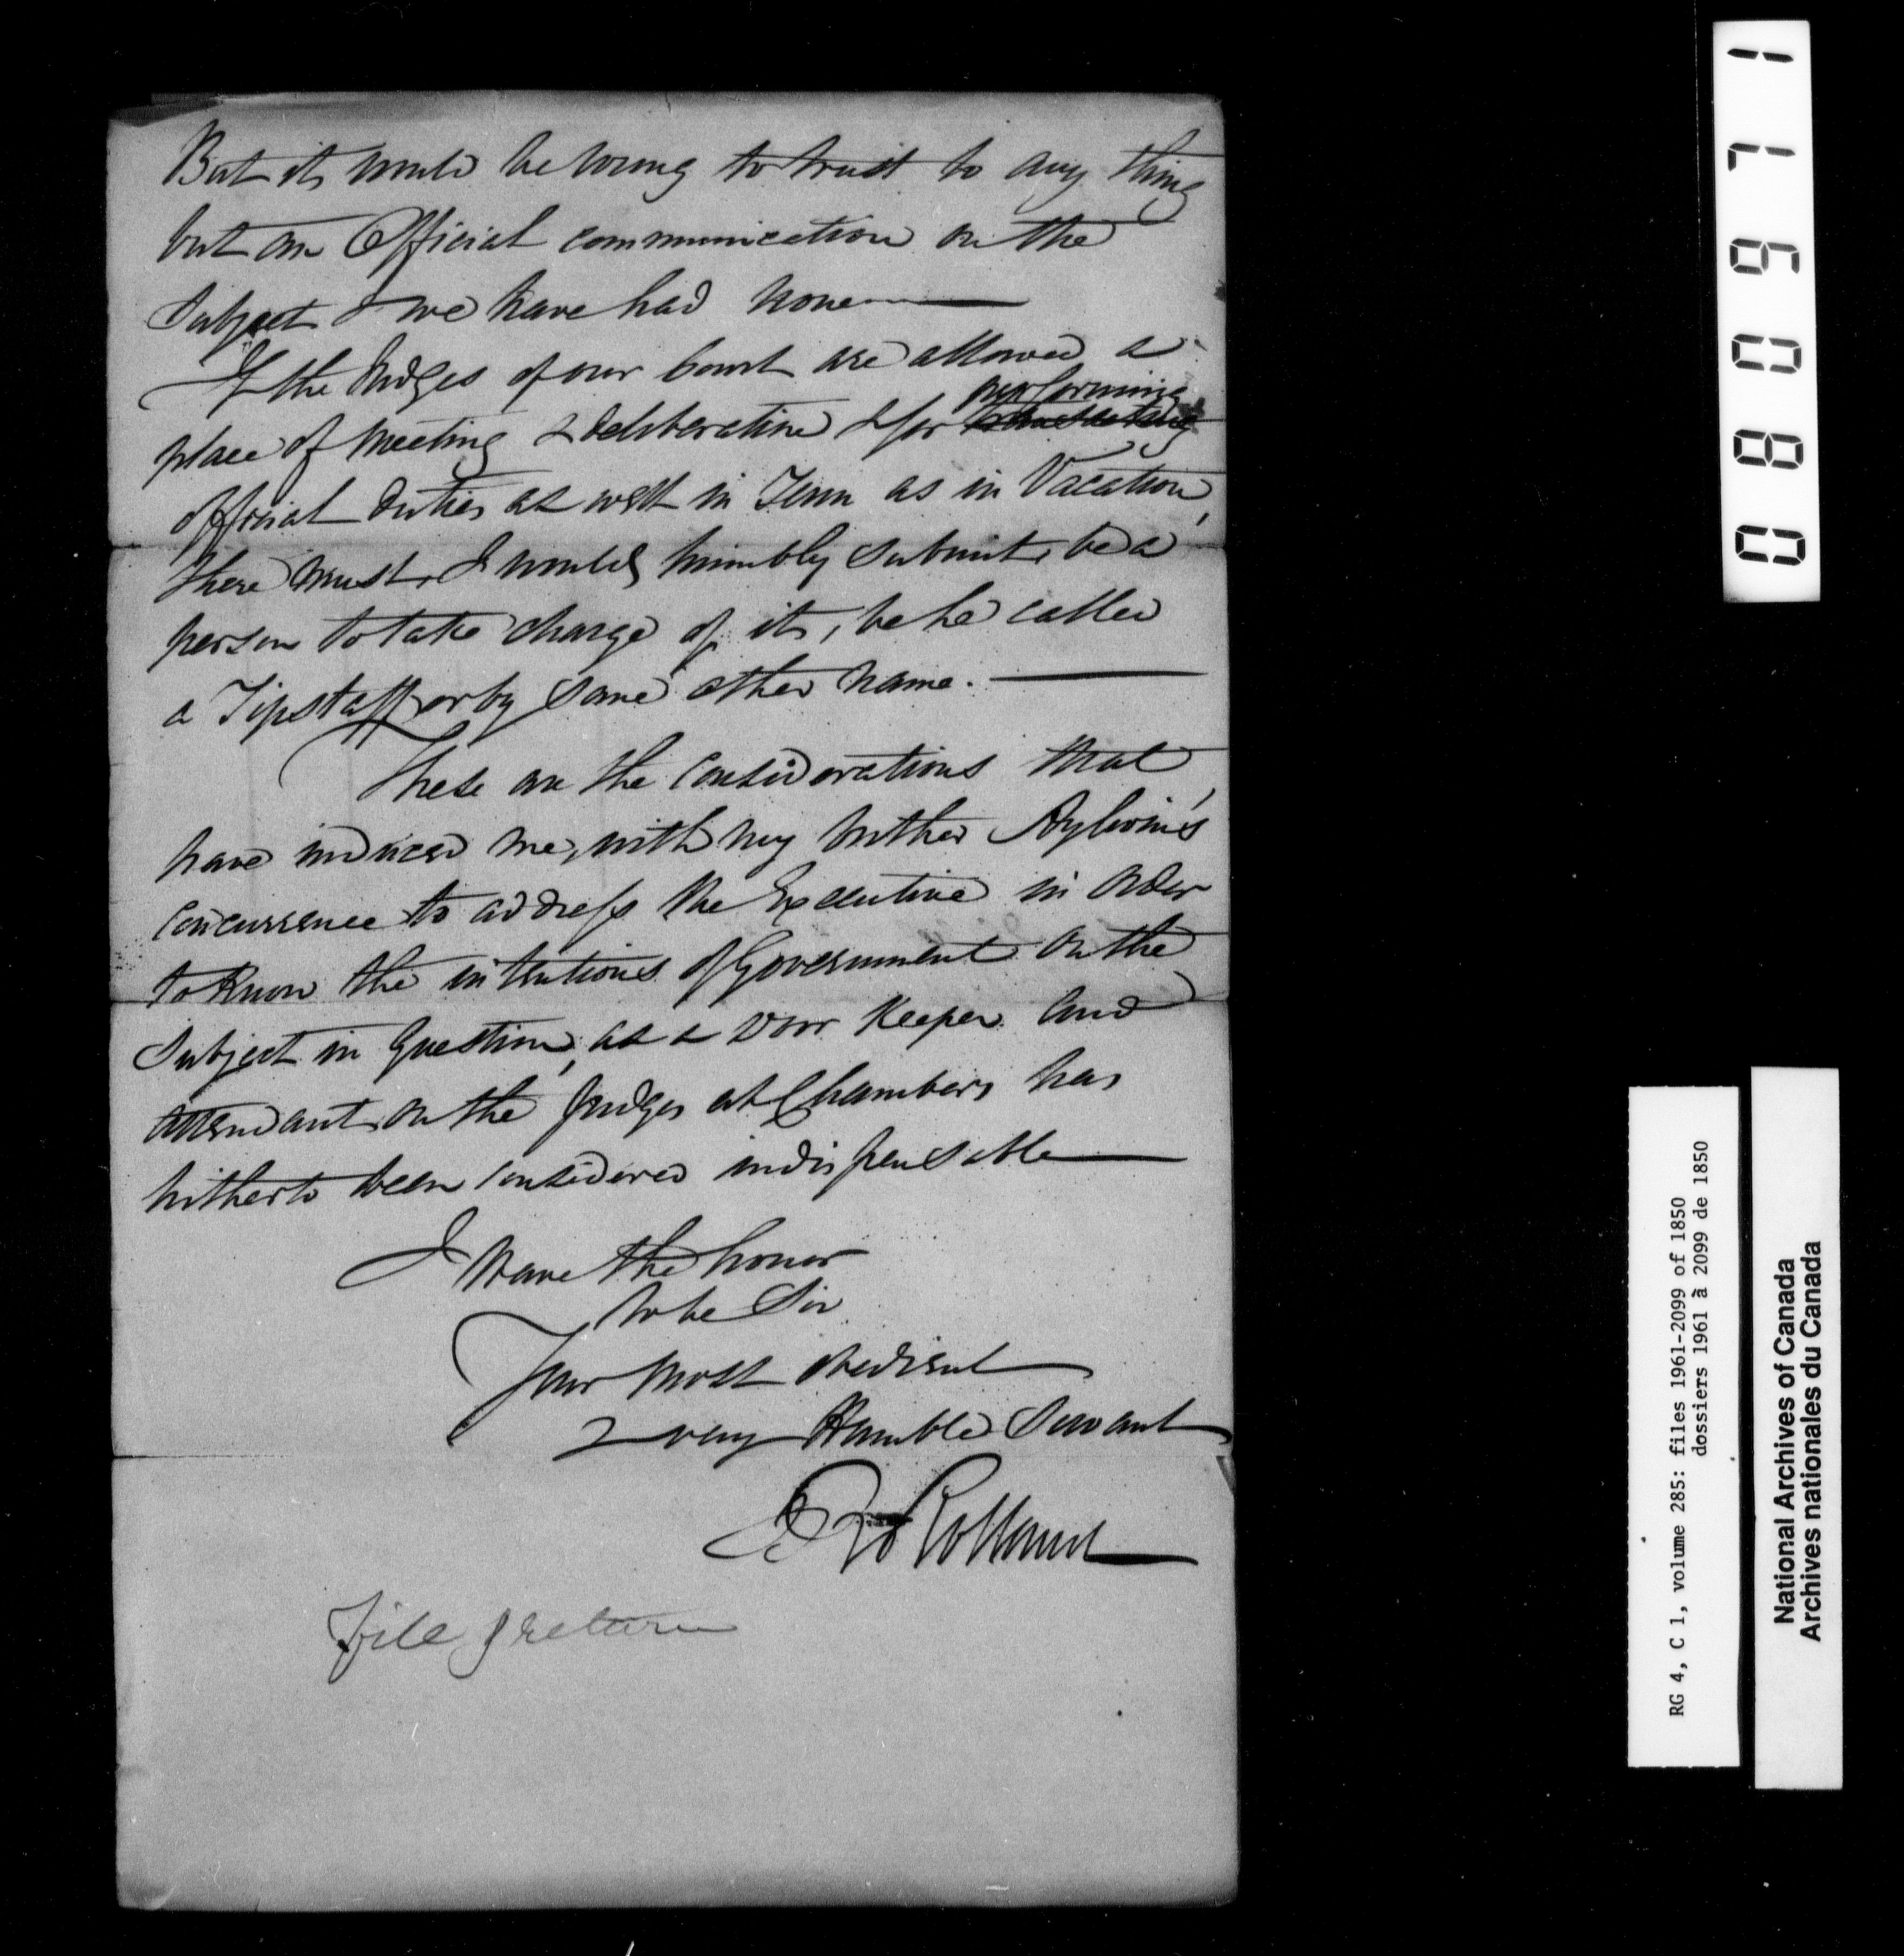 But it would be wrong to trust to any thing
but an Official communication on the
Subject & we have had none—
If the Judges of our Court are allowed a
place of meeting & deliberation & for performing
official duties as well in Term as in Vacation,
there must, I would humbly submit, be a
person to take charge of it, be he called
a Tipstaff or by some other name.—
These are the considerations that
have induced me, with my brother Aylwin's
concurrence to address the Executive in order
to know the intentions of Government on the
subject in question, as a Door Keeper and
attendant on the Judges at Chambers has
hitherto been considered indispensable—
I have the honor
to be Sir
Your most obedient
& very Humble Servant
Rolland
File & return
080971
RG 4, C 1, volume 285: files 1961-2099 of 1850
dossiers 1961 à 2099 de 1850
National Archives of Canada
Archives nationales du Canada